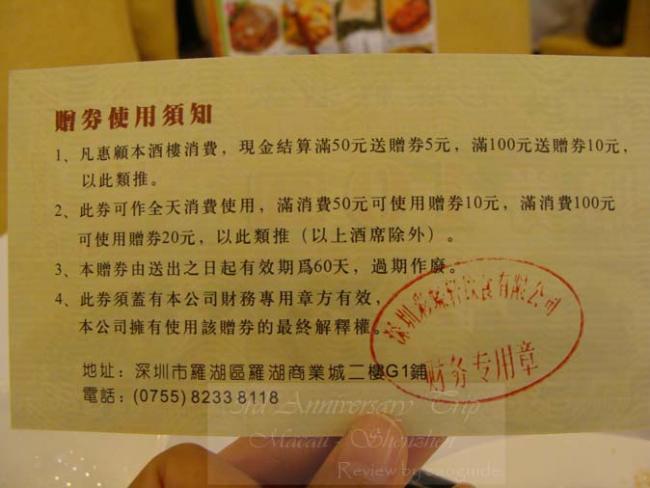 贈券使用須知
1、凡惠顧本酒樓消費，現金結算滿50元送贈券5元，滿100元送贈券10元，
以此類推。
2、此券可作全天消費使用，滿消費50元可使用贈券10元，滿消費100元
可使用贈券20元，以此類推（以上酒席除外）。
3、本贈券由送出之日起有效期爲60天，過期作廢。
4、此券須蓋有本公司財務專用章方有效，
本公司擁有使用該贈券的最終解釋權。
深圳彩蝶軒饮食有限公司
财务专用章
地址：深圳市羅湖區羅湖商業城二樓G1鋪
電話：(0755) 8233 8118
3rd Anniversary Trip
Macau - Shenzhen
Review by